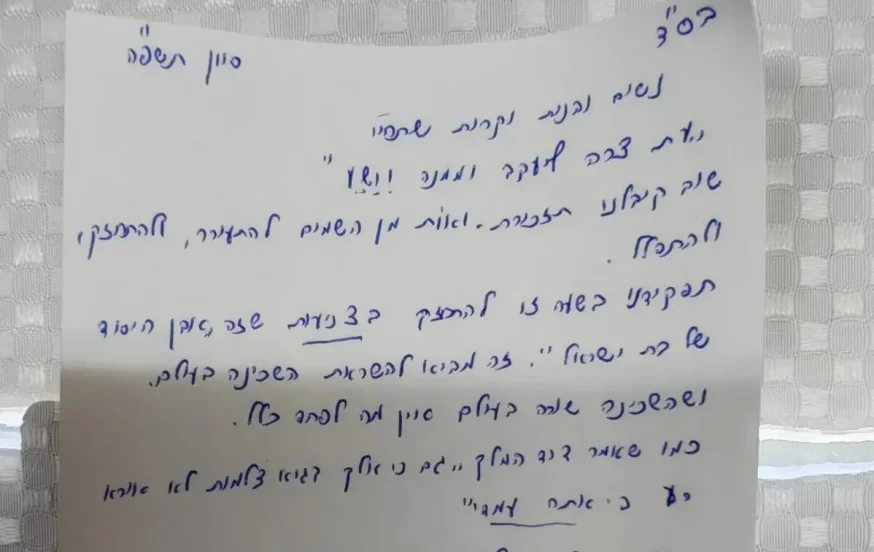 בס"ד
סיוון תשפ"ה
נשים ובנות יקרות שתחיו
"עת צרה ליעקב וממנה יוושע"
שוב קיבלנו תזכורת. ואות מן השמים להתעורר, להתחזק,
ולהתפלל.
תפקידנו בשעה זו להתחזק בצניעות שזה "אבן היסוד
של בת ישראל". זה מביא להשראת השכינה בעולם.
ושהשכינה שורה בעולם אין מה לפחד כלל.
כמו שאומר דוד המלך "גם כי אלך בגיא צלמות לא אירא
רע כי אתה עמדי"